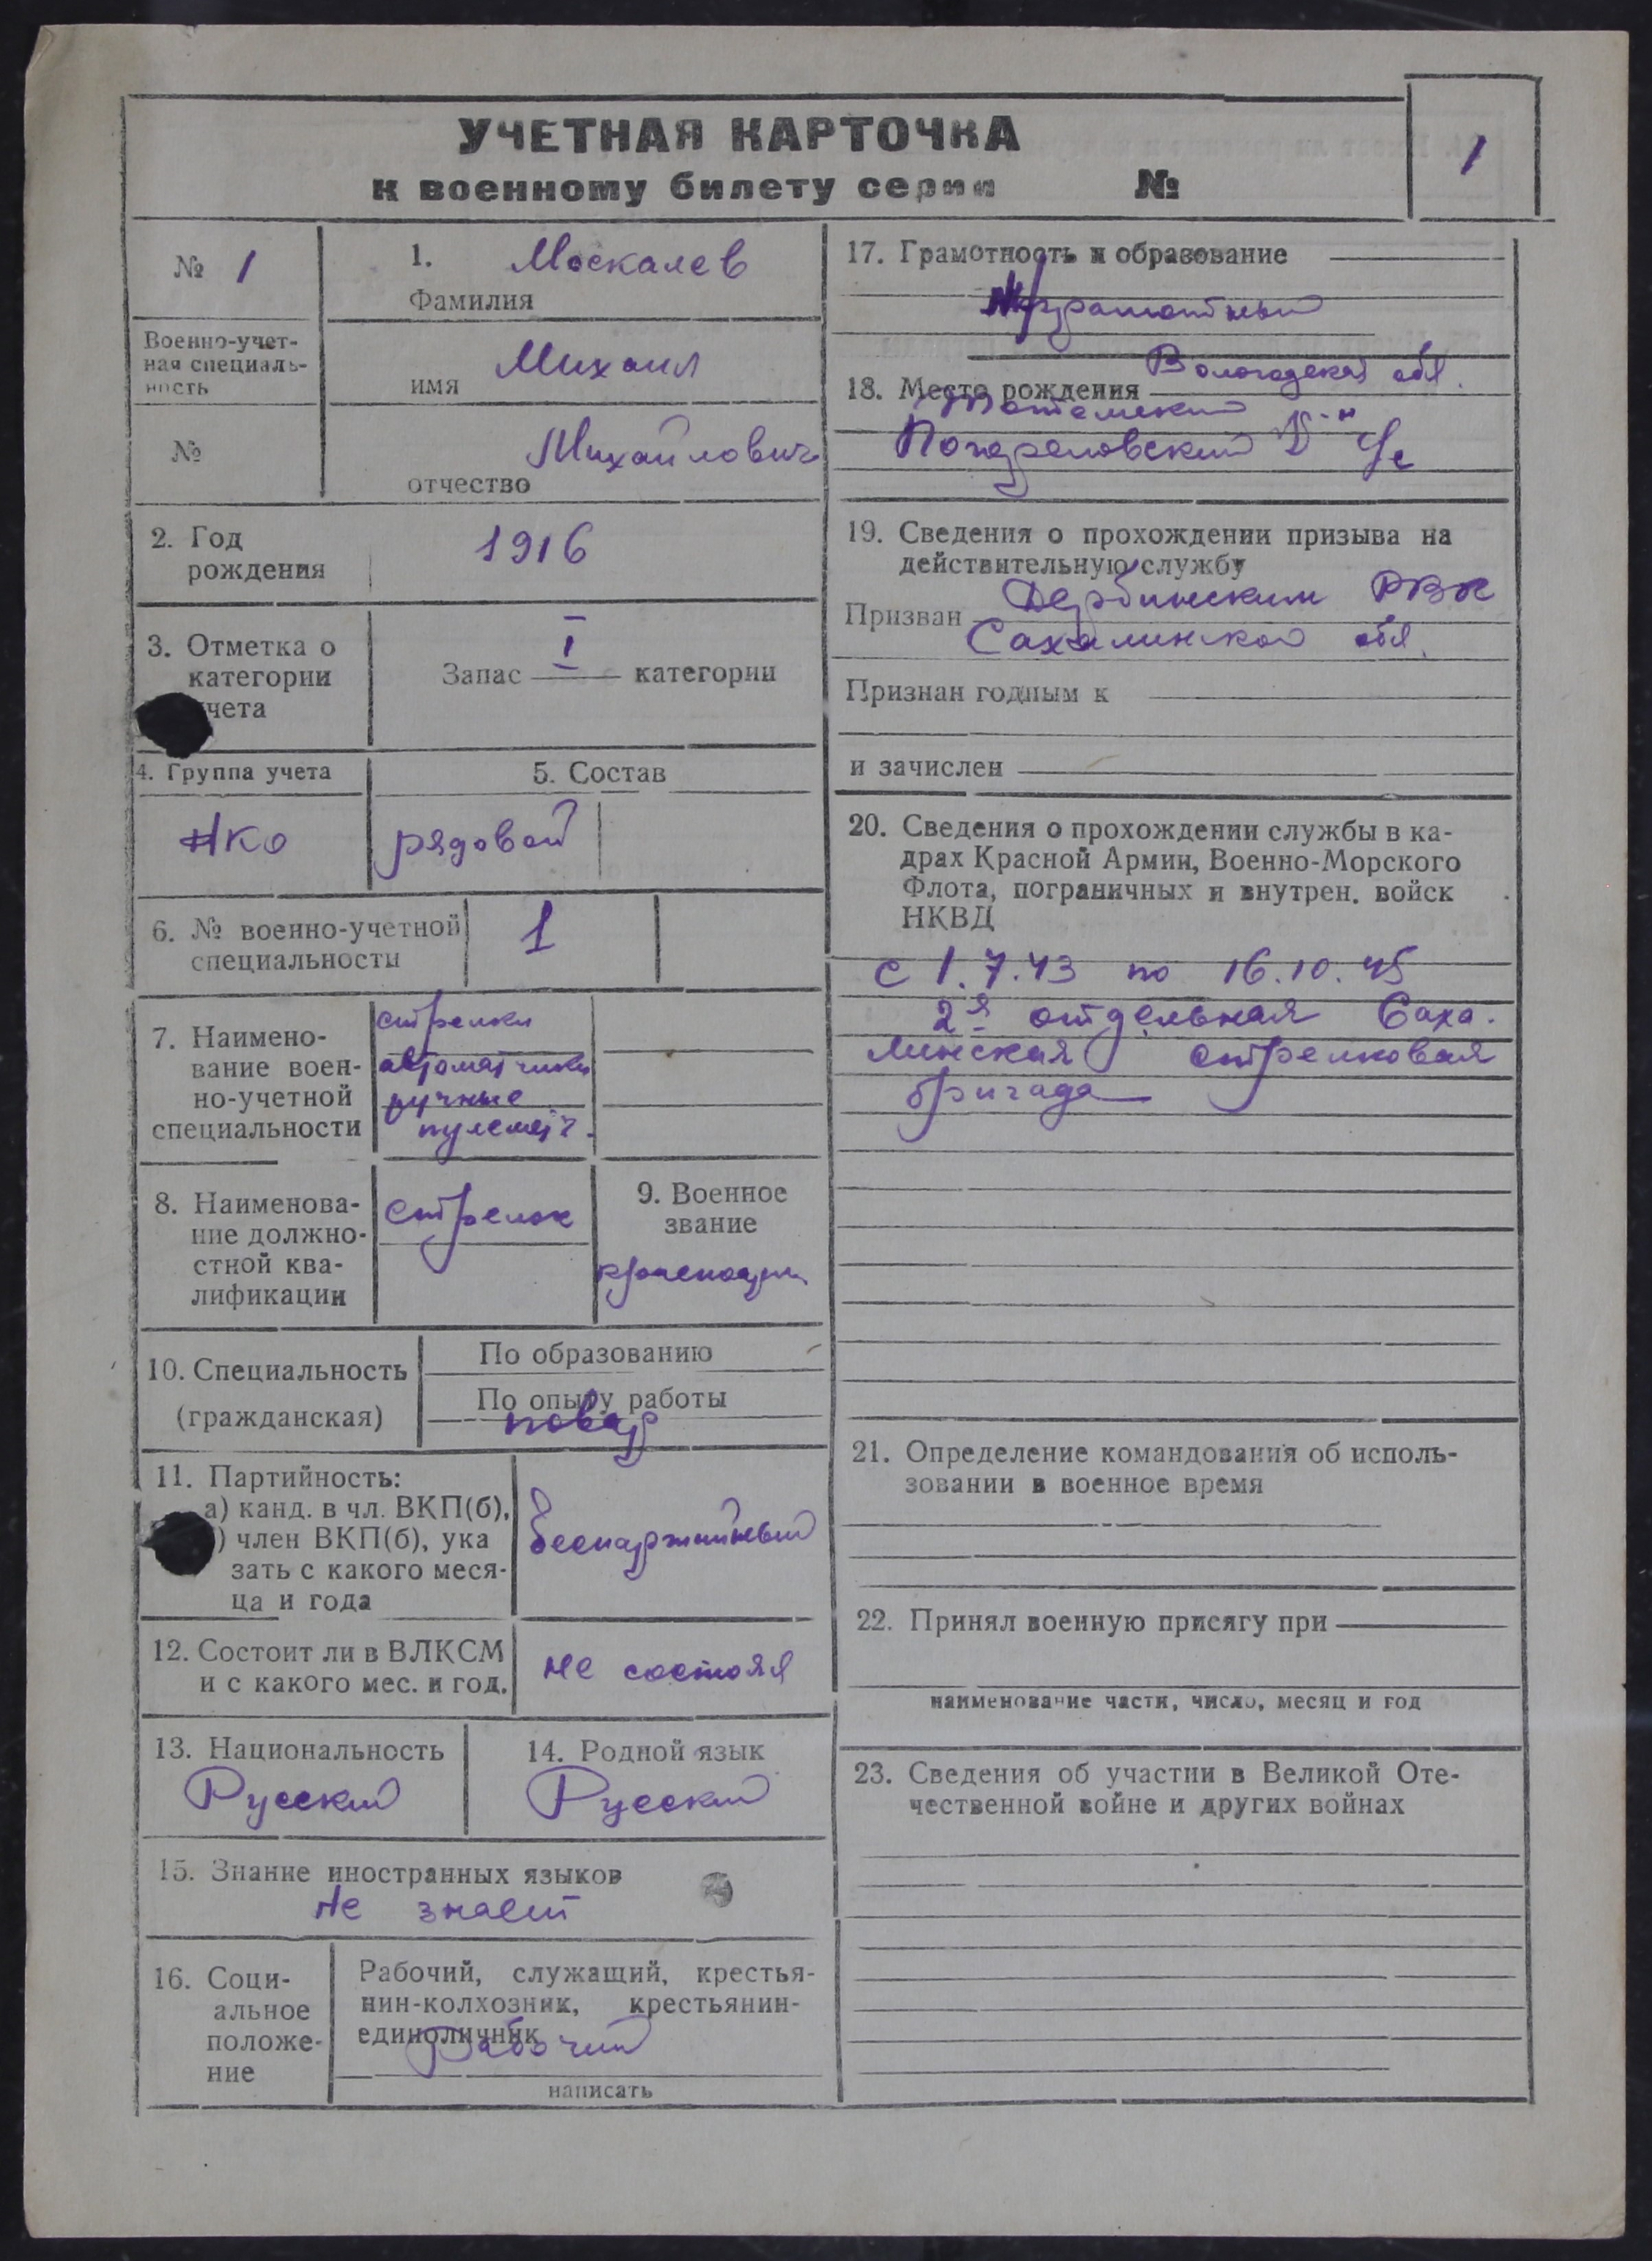 УЧЕТНАЯ КАРТОЧКА
к военному билету серии №
1
№ 1
Военно-учет-
ная специаль-
ность
№
1. Москалев
Фамилия
имя Михаил
Михайлович
отчество
2. Год
рождения
1916
3. Отметка о
категории
учета
Запас I категории
4. Группа учета
НКО
5. Состав
рядовой
6. № военно-учетной
специальности
1
7. Наимено-
вание воен-
но-учетной
специальности
стрелки
автоматчики
ручные
пулемётч.
8. Наименова-
ние должно-
стной ква-
лификации
стрелок
9. Военное
звание
10. Специальность
(гражданская)
По образованию
По опыту работы
повар
11. Партийность:
а) канд. в чл. ВКП(б),
) член ВКП(б), ука
зать с какого меся-
ца и года
беспартийный
12. Состоит ли в ВЛКСМ
и с какого мес. и год.
не состоял
13. Национальность
Русский
14. Родной язык
Русский
15. Знание иностранных языков
Не знает
16. Соци-
альное
положе-
ние
Рабочий, служащий, крестья-
нин-колхозник, крестьянин-
единоличник
Рабочий
написать
17. Грамотность и образование
грамотный
Вологодская обл.
18. Место рождения
Тотемский
19. Сведения о прохождении призыва на
действительную службу
Призван Дербинским РВК
Сахалинской обл.
Признан годным к
и зачислен
20. Сведения о прохождении службы в ка-
драх Красной Армии, Военно-Морского
Флота, пограничных и внутрен. войск
НКВД
с 1.7.43 по 16.10.45
2я отдельная Саха-
линская стрелковая
бригада
21. Определение командования об исполь-
зовании в военное время
22. Принял военную присягу при
наименование части, число, месяц и год
23. Сведения об участии в Великой Оте-
чественной войне и других войнах